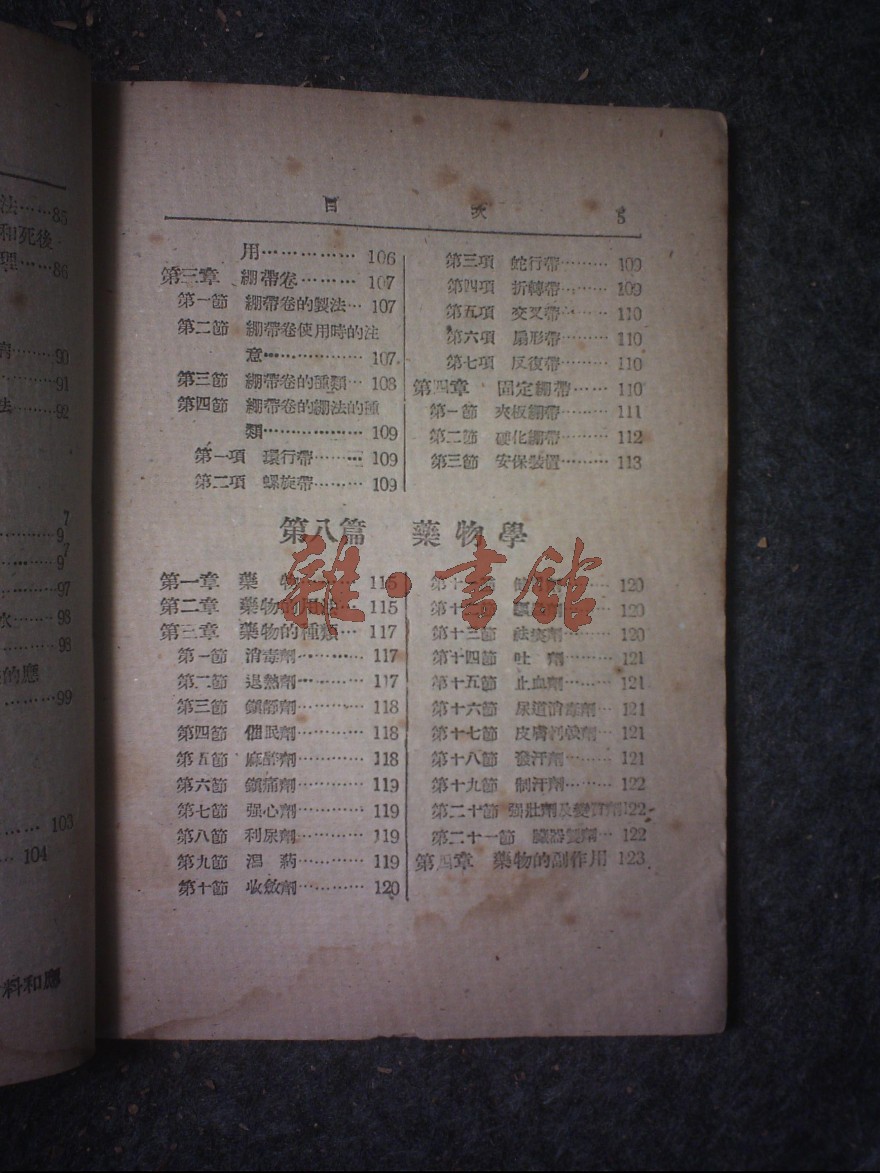 法……85
和死後
理……86
90
91
法……92
7
9
7
9
97
水……98
98
的應
99
103
104
料和應
目 次 5
用…………… 106
第三章 綳帶卷……… 107
第一節 綳帶卷的製法… 107
第二節 綳帶卷使用時的注
意……………… 107
第三節 綳帶卷的種類… 108
第四節 綳帶卷的綳法的種
類……………… 109
第一項 環行帶……… 109
第二項 螺旋帶……… 109
第三項 蛇行帶……… 109
第四項 折轉帶……… 109
第五項 交叉帶……… 110
第六項 扇形帶……… 110
第七項 反復帶……… 110
第四章 固定綳帶…… 110
第一節 夾板綳帶……… 111
第二節 硬化綳帶……… 112
第三節 安保裝置……… 113
第八篇 藥物學
第一章 藥 物……… 115
第二章 藥物的用法… 115
第三章 藥物的種類… 117
第一節 消毒劑………… 117
第二節 退熱劑………… 117
第三節 鎮靜劑………… 118
第四節 催眠劑………… 118
第五節 麻醉劑………… 118
第六節 鎮痛劑………… 119
第七節 强心劑………… 119
第八節 利尿劑………… 119
第九節 瀉 藥………… 119
第十節 收斂劑………… 120
第十一節 120
第十二節 120
第十三節 祛痰劑……… 120
第十四節 吐 劑……… 121
第十五節 止血劑……… 121
第十六節 尿道消毒劑… 121
第十七節 皮膚刺戟劑… 121
第十八節 發汗劑……… 121
第十九節 制汗劑……… 122
第二十節 强壯劑及變質劑 122
第二十一節 臟器製劑… 122
第四章 藥物的副作用 123
雜·書館